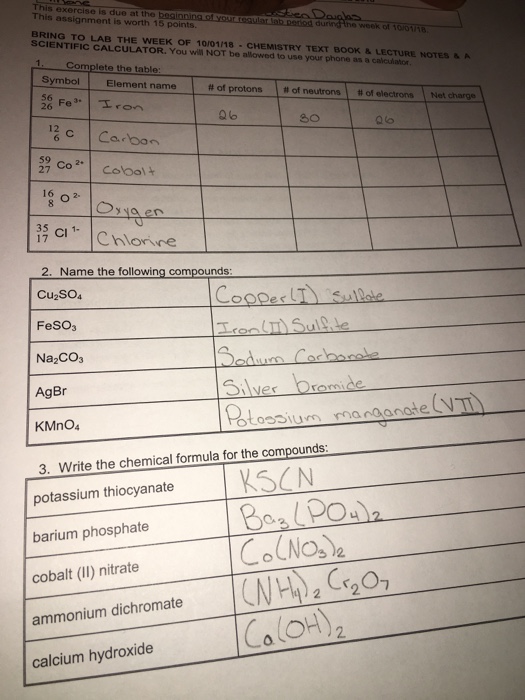 This exercise is due at the beginning of your regular lab period during the week of 10/01/18
This assignment is worth 15 points.
BRING TO LAB THE WEEK OF 10/01/18 - CHEMISTRY TEXT BOOK & LECTURE NOTES & A
SCIENTIFIC CALCULATOR. You will NOT be allowed to use your phone as a calculator.
1. Complete the table:
Symbol Element name # of protons # of neutrons # of electrons Net charge
56 26 Fe 3+ Iron 26 30 26
12 6 C Carbon
59 27 Co 2+ Cobalt
16 8 O 2- Oxygen
35 17 Cl 1- Chlorine
2. Name the following compounds:
Cu₂SO₄ Copper(I) Sulfate
FeSO₃ Iron(II) Sulfite
Na₂CO₃ Sodium Carbonate
AgBr Silver bromide
KMnO₄ Potassium manganate(VII)
3. Write the chemical formula for the compounds:
potassium thiocyanate KSCN
barium phosphate Ba₃(PO₄)₂
cobalt (II) nitrate Co(NO₃)₂
ammonium dichromate (NH₄)₂Cr₂O₇
calcium hydroxide Ca(OH)₂